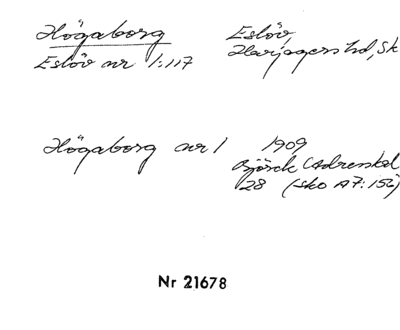 Högaborg
Eslöv nr 1:117
Eslöv,
Harjagers hd, Sk
Högaborg nr 1
1909
Björck (Adresskal
28 (sko A7:156)
Nr 21678